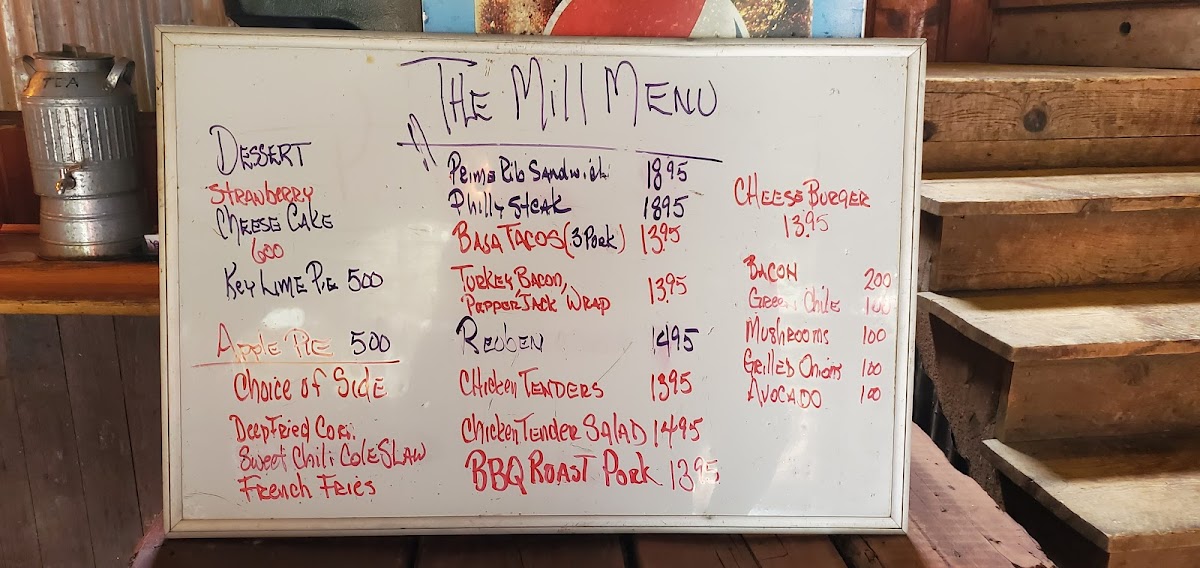 TEA
THE Mill MENU
DESSERT
STRAWBERRY
CHEESE CAKE
600
KEY LIME PIE 500
Apple PIE 500
Choice of SIDE
DEEP FRIED CORN
Sweet Chili COLESLAW
FRENCH FRIES
Prime Rib Sandwich 1895
Philly Steak 1895
BAJA TACOS (3 Pork) 13.95
TURKEY, BACON, 13.95
PEPPER JACK WRAP
REUBEN 1495
CHICKEN TENDERS 1395
Chicken TENDER SALAD 1495
BBQ ROAST PORK 1395
CHEESE BURGER
13.95
BACON 200
GREEN Chile 100
MUSHROOMS 100
GRILLED ONIONS 100
AVOCADO 100